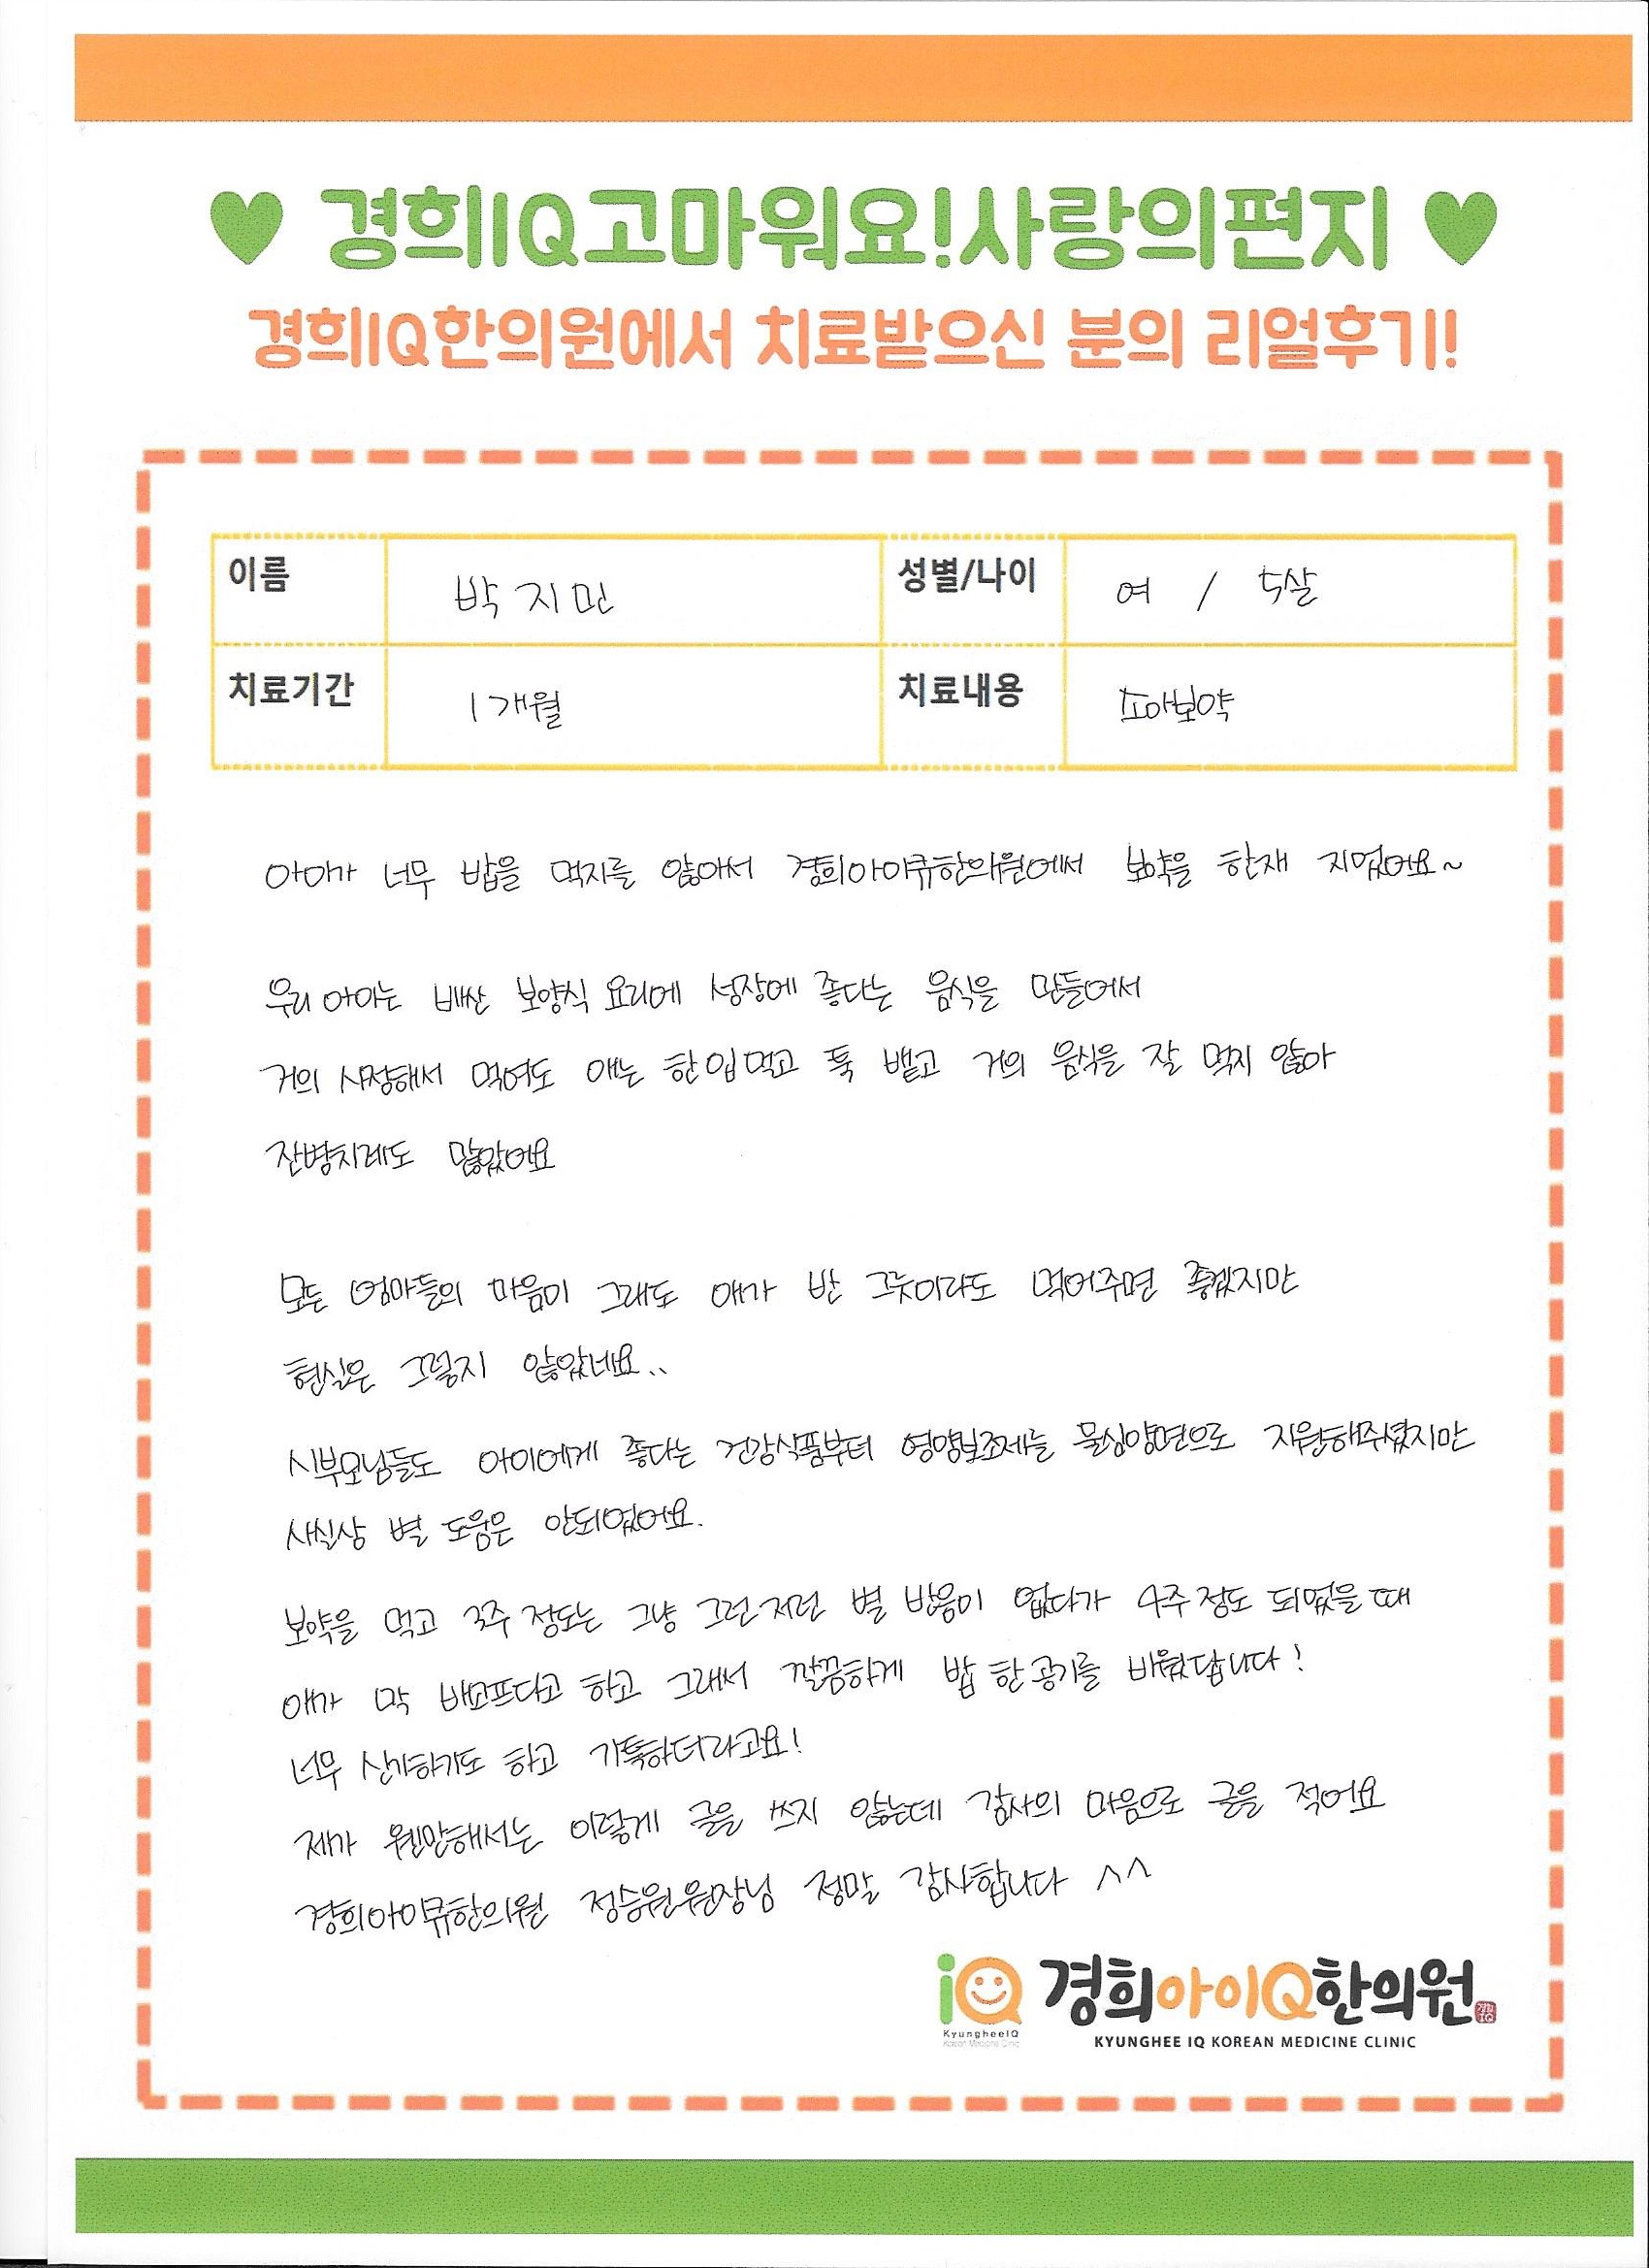 ♥ 경희IQ고마워요!사랑의편지 ♥
경희IQ한의원에서 치료받으신 분의 리얼후기!
이름 박지민 성별/나이 여 / 5살
치료기간 1개월 치료내용 소아보약
아이가 너무 밥을 먹지를 않아서 경희아이큐한의원에서 보약을 한재 지었어요~
우리 아이는 비싼 보양식 요리에 성장에 좋다는 음식을 만들어서
거의 사정해서 먹여도 애는 한입먹고 툭 뱉고 거의 음식을 잘 먹지 않아
잔병치레도 많았어요
모든 엄마들의 마음이 그래도 애가 반 그릇이라도 먹어주면 좋겠지만
현실은 그렇지 않았네요..
시부모님들도 아이에게 좋다는 건강식품부터 영양보조제를 물심양면으로 지원해주셨지만
사실상 별 도움은 안되었어요.
보약을 먹고 3주 정도는 그냥 그런저런 별 반응이 없다가 4주 정도 되었을 때
애가 막 배고프다고 하고 그래서 깔끔하게 밥 한공기를 비웠답니다!
너무 신기하기도 하고 기특하더라고요!
제가 웬만해서는 이렇게 글을 쓰지 않는데 감사의 마음으로 글을 적어요
경희아이큐한의원 정승원원장님 정말 감사합니다 ^^
iQ 경희아이Q한의원 경희IQ
KyungheeIQ KYUNGHEE IQ KOREAN MEDICINE CLINIC
Korean Medicine Clinic